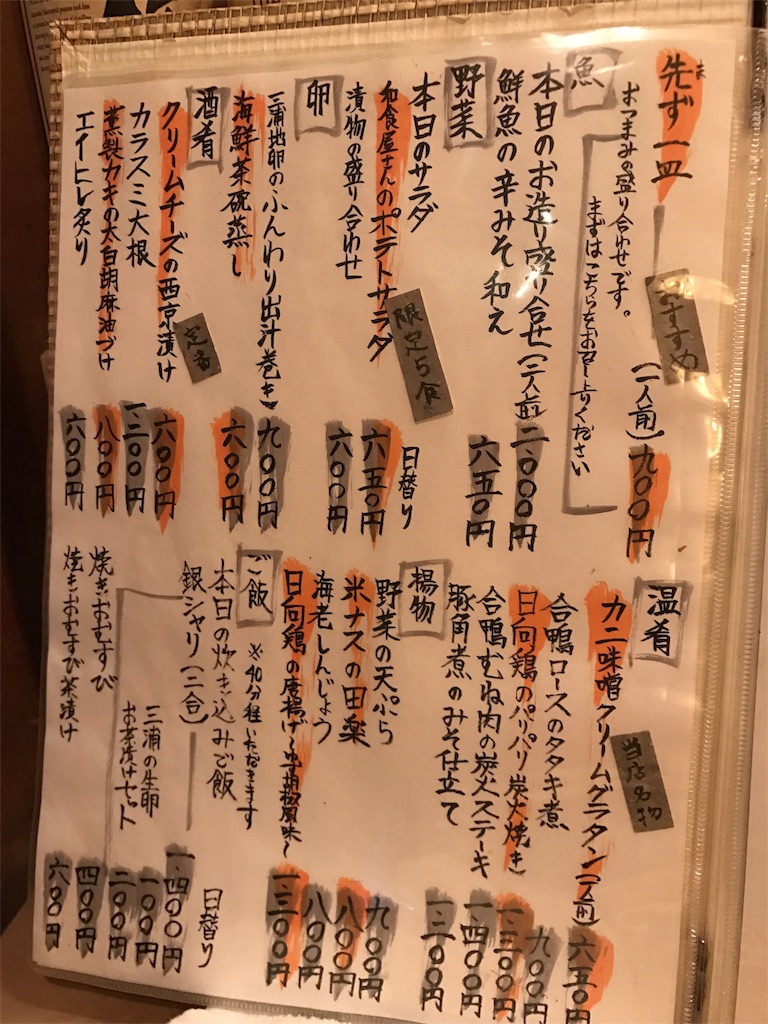 先ず一皿
ま
おすすめ
(一人前)九〇〇円
おつまみの盛り合わせです。
まずはこちらをお召し上りください
魚
本日のお造り盛り合せ(一人前 二、〇〇〇円
鮮魚の辛みそ和え 六五〇円
野菜
本日のサラダ 日替り
和食屋さんのポテトサラダ 限定5食 六五〇円
漬物の盛り合わせ 六〇〇円
卵
三浦地卵のふんわり出汁巻き 九〇〇円
海鮮茶碗蒸し 六〇〇円
酒肴
クリームチーズの西京漬け 定番 六〇〇円
カラスミ大根 一、三〇〇円
燻製カキの太白胡麻油づけ 八〇〇円
エイヒレ炙り 六〇〇円
温肴
カニ味噌クリームグラタン(一人前) 六五〇円
当店名物
合鴨ロースのタタキ煮 九〇〇円
日向鶏のパリパリ炭火焼き 一、三〇〇円
合鴨むね肉の炭火ステーキ 一、四〇〇円
豚角煮のみそ仕立て 一、二〇〇円
揚物
野菜の天ぷら 九〇〇円
米ナスの田楽 八〇〇円
海老しんじょう 八〇〇円
日向鶏の唐揚げ〜柚子胡椒風味〜 一、三〇〇円
ご飯
※40分程いただきます
本日の炊き込みご飯 日替り
銀シャリ(二合) 一、四〇〇円
三浦の生卵 一〇〇円
お茶漬けセット 二〇〇円
焼きおむすび 四〇〇円
焼きおむすび茶漬け 六〇〇円